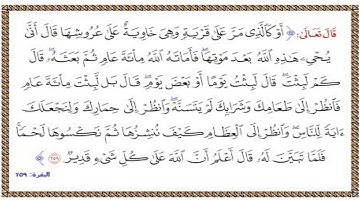 قَالَ تَعَالَىٰ: ﴿ أَوْ كَٱلَّذِى مَرَّ عَلَىٰ قَرْيَةٍ وَهِىَ خَاوِيَةٌ عَلَىٰ عُرُوشِهَا قَالَ أَنَّىٰ
يُحْىِۦ هَٰذِهِ ٱللَّهُ بَعْدَ مَوْتِهَا ۖ فَأَمَاتَهُ ٱللَّهُ مِا۟ئَةَ عَامٍ ثُمَّ بَعَثَهُۥ ۖ قَالَ
كَمْ لَبِثْتَ ۖ قَالَ لَبِثْتُ يَوْمًا أَوْ بَعْضَ يَوْمٍ ۖ قَالَ بَل لَّبِثْتَ مِا۟ئَةَ عَامٍ
فَٱنظُرْ إِلَىٰ طَعَامِكَ وَشَرَابِكَ لَمْ يَتَسَنَّهْ ۖ وَٱنظُرْ إِلَىٰ حِمَارِكَ وَلِنَجْعَلَكَ
ءَايَةً لِّلنَّاسِ ۖ وَٱنظُرْ إِلَى ٱلْعِظَامِ كَيْفَ نُنشِزُهَا ثُمَّ نَكْسُوهَا لَحْمًا ۚ
فَلَمَّا تَبَيَّنَ لَهُۥ قَالَ أَعْلَمُ أَنَّ ٱللَّهَ عَلَىٰ كُلِّ شَىْءٍ قَدِيرٌ ﴿٢٥٩﴾ ﴾
البقرة: ٢٥٩